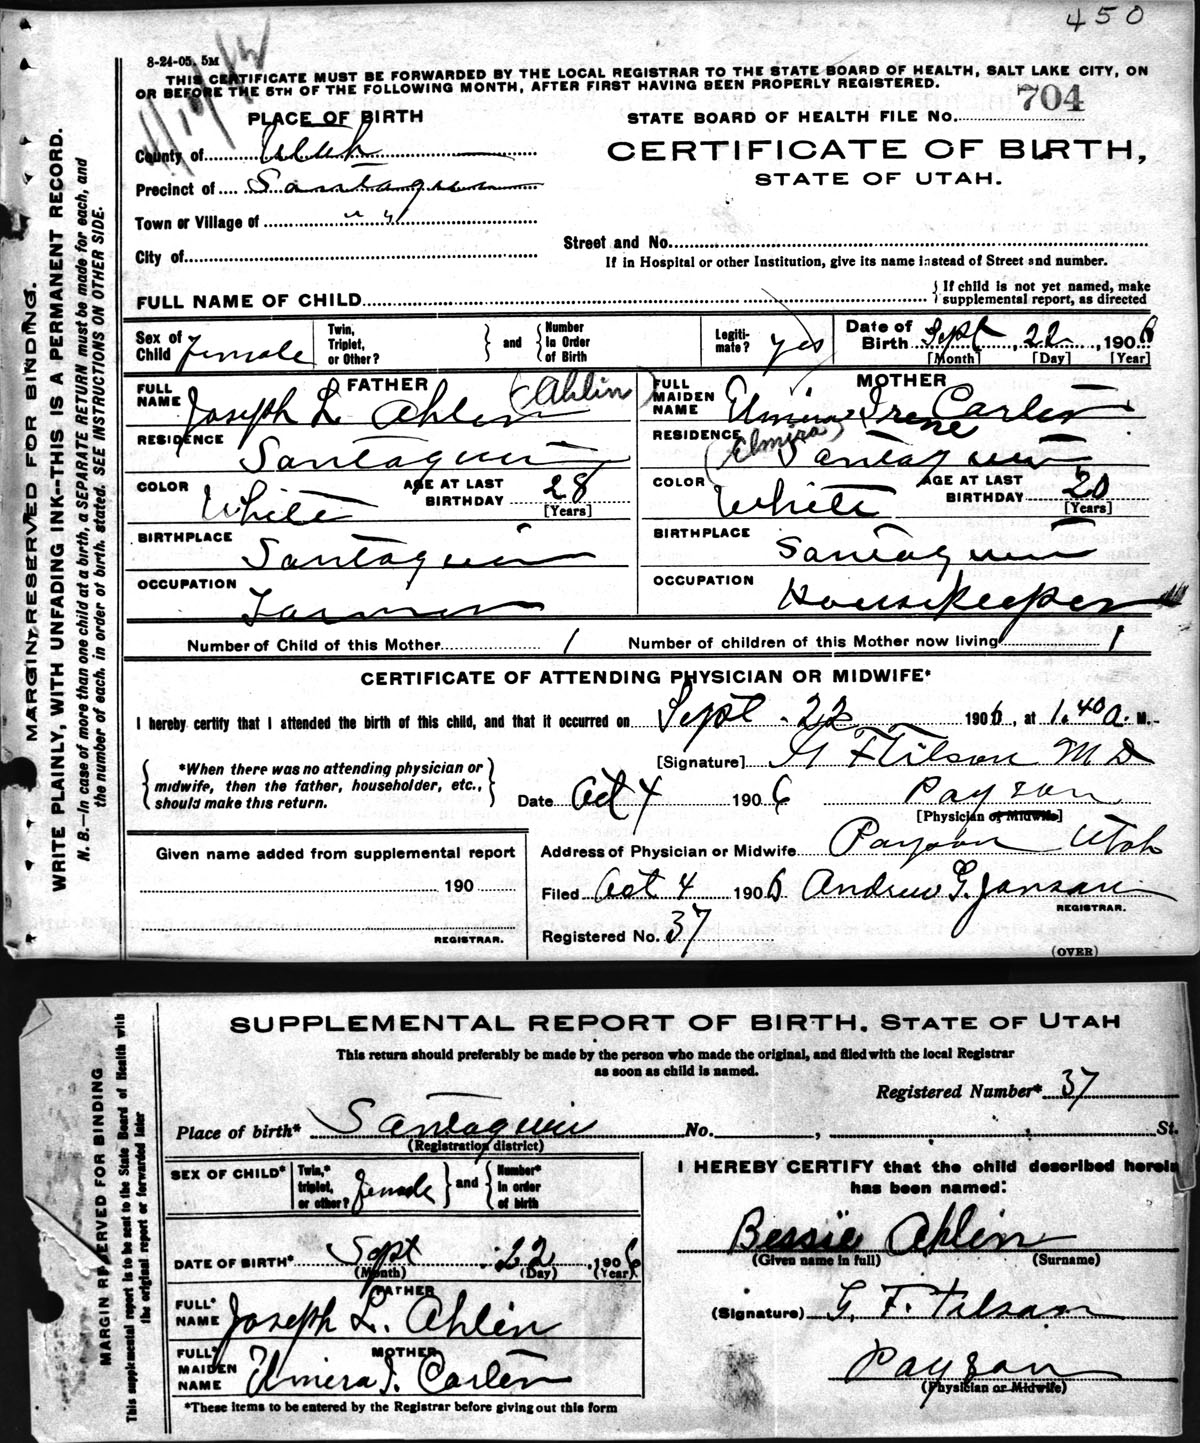 450
8-24-05. 5M
THIS CERTIFICATE MUST BE FORWARDED BY THE LOCAL REGISTRAR TO THE STATE BOARD OF HEALTH, SALT LAKE CITY, ON
OR BEFORE THE 5TH OF THE FOLLOWING MONTH, AFTER FIRST HAVING BEEN PROPERLY REGISTERED.
PLACE OF BIRTH
STATE BOARD OF HEALTH FILE No. 704
County of Utah
CERTIFICATE OF BIRTH,
STATE OF UTAH.
Precinct of Santaquin
Town or Village of " "
Street and No.
City of
If in Hospital or other Institution, give its name instead of Street and number.
FULL NAME OF CHILD
{ If child is not yet named, make supplemental report, as directed
Sex of Child female
Twin, Triplet, or Other? } and { Number In Order of Birth
Legitimate? yes
Date of Birth Sept, 22, 1906
[Month] [Day] [Year]
FATHER
FULL NAME Joseph L Ahlin (Ahlin)
RESIDENCE Santaquin
COLOR White AGE AT LAST BIRTHDAY 28 [Years]
BIRTHPLACE Santaquin
OCCUPATION Farmer
MOTHER
FULL MAIDEN NAME Elmira Irene Carter
RESIDENCE (Elmira) Santaquin
COLOR White AGE AT LAST BIRTHDAY 20 [Years]
BIRTHPLACE Santaquin
OCCUPATION Housekeeper
Number of Child of this Mother 1 Number of children of this Mother now living 1
CERTIFICATE OF ATTENDING PHYSICIAN OR MIDWIFE*
I hereby certify that I attended the birth of this child, and that it occurred on Sept. 22 1906, at 1.40 a. M.
{ *When there was no attending physician or midwife, then the father, householder, etc., should make this return. }
[Signature] G F Tilson M D
Date Oct 4 1906 Payson
[Physician or Midwife]
Given name added from supplemental report
190
REGISTRAR.
Address of Physician or Midwife Payson Utah
Filed Oct 4 1906 Andrew G. Jensen
REGISTRAR.
Registered No. 37
(OVER)
MARGIN RESERVED FOR BINDING.
WRITE PLAINLY, WITH UNFADING INK--THIS IS A PERMANENT RECORD.
N. B.—In case of more than one child at a birth, a SEPARATE RETURN must be made for each, and
the number of each, in order of birth, stated. SEE INSTRUCTIONS ON OTHER SIDE.
SUPPLEMENTAL REPORT OF BIRTH, STATE OF UTAH
This return should preferably be made by the person who made the original, and filed with the local Registrar
as soon as child is named.
Registered Number* 37
Place of birth* Santaquin No. , St.
(Registration district)
SEX OF CHILD* Twin,* triplet, or other? female } and { Number* In order of birth
DATE OF BIRTH* Sept 22, 1906
(Month) (Day) (Year)
FATHER
FULL* NAME Joseph L. Ahlin
MOTHER
FULL* MAIDEN NAME Elmera I. Carter
*These items to be entered by the Registrar before giving out this form
I HEREBY CERTIFY that the child described herein
has been named:
Bessie Ahlin
(Given name in full) (Surname)
(Signature) G. F. Tilson
Payson
(Physician or Midwife)
MARGIN RESERVED FOR BINDING
This supplemental report is to be sent to the State Board of Health with
the original report or forwarded later